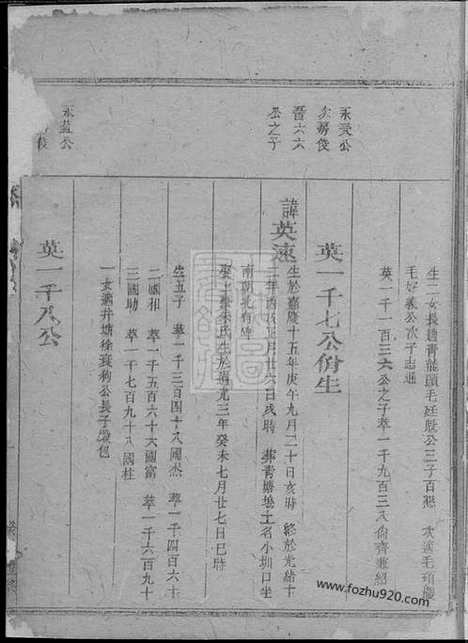 永葵公
次房俊
晋六六
公之子
永益公
俊
生二女長適青龍頭毛廷殷公三子百 次適毛
毛好義公次子志通
英一千一百三六公之子萃一千九百三八 齊兼紹
英一千七公 生
諱英遠
生於嘉慶十五年庚午九月二十日亥時 終於光緒十
二年 正月廿六日戌時 葬青塘塢土名小圳口坐
南朝北有碑
娶 氏生於道光三年癸未七月廿七日巳時
生五子 萃一千三百四十八國杰 萃一千四百六十
二國相 萃一千五百六十六國富 萃一千六百九十
三國助 萃一千七百九十八國柱
一女適井塘徐 公長子
英一千八公
www.fozhu920.com